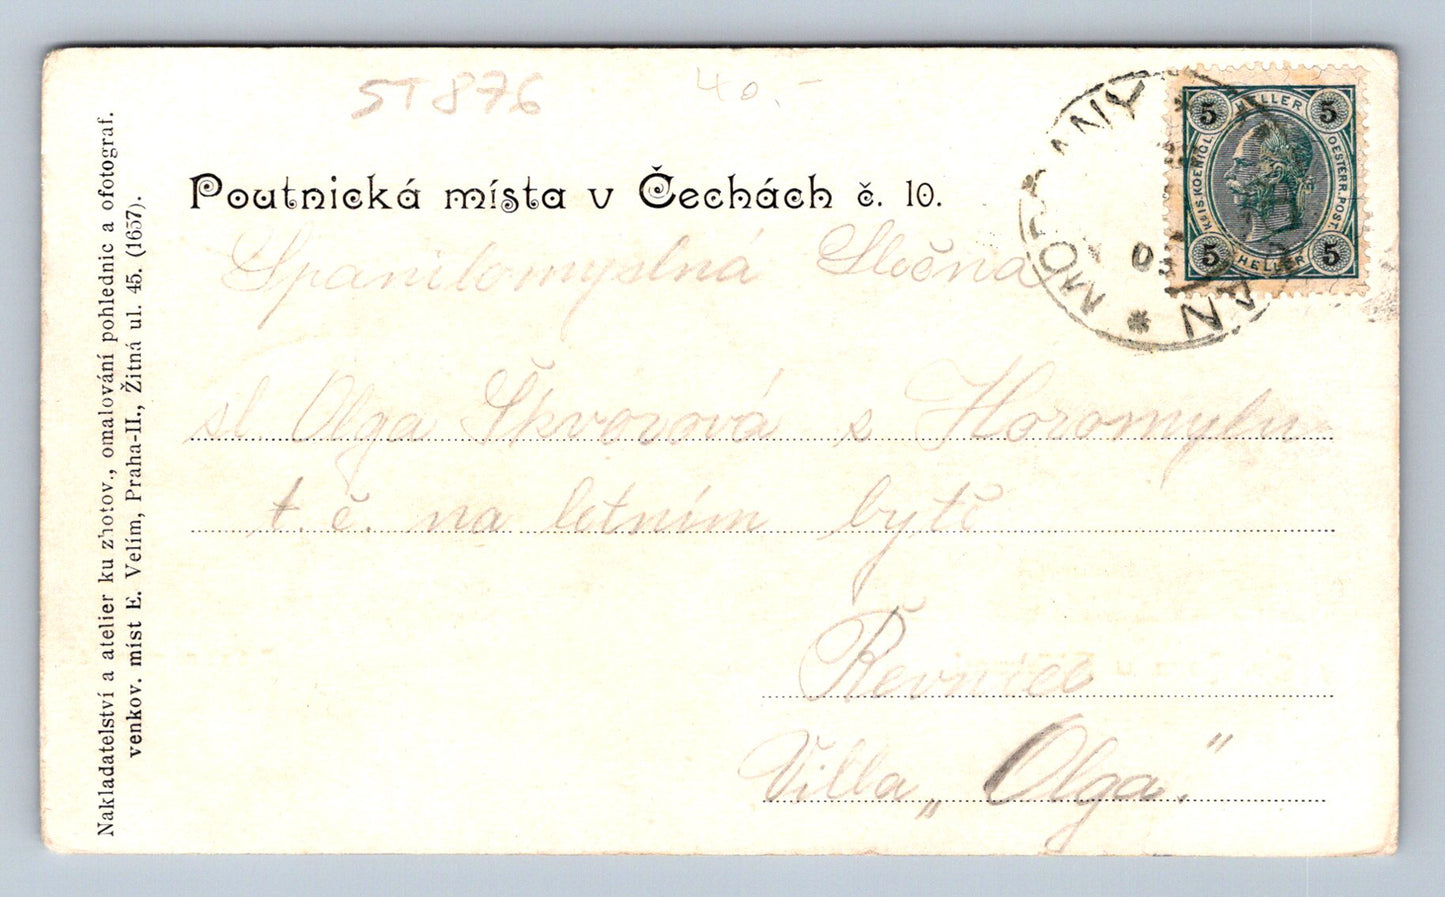 ST 876
40.-
Poutnická místa v Čechách č. 10.
Spanilomyslná Slečna
sl. Olga Škvorová z Horomyslu
t. č. na letním bytě
Řevnice
Villa „Olga."
Nakladatelství a atelier ku zhotov., omalování pohlednic a ofotograf.
venkov. míst E. Velím, Praha-II., Žitná ul. 45. (1657).
5 HELLER 5
KAIS. KOENIGL.
OESTERR. POST.
5 HELLER 5